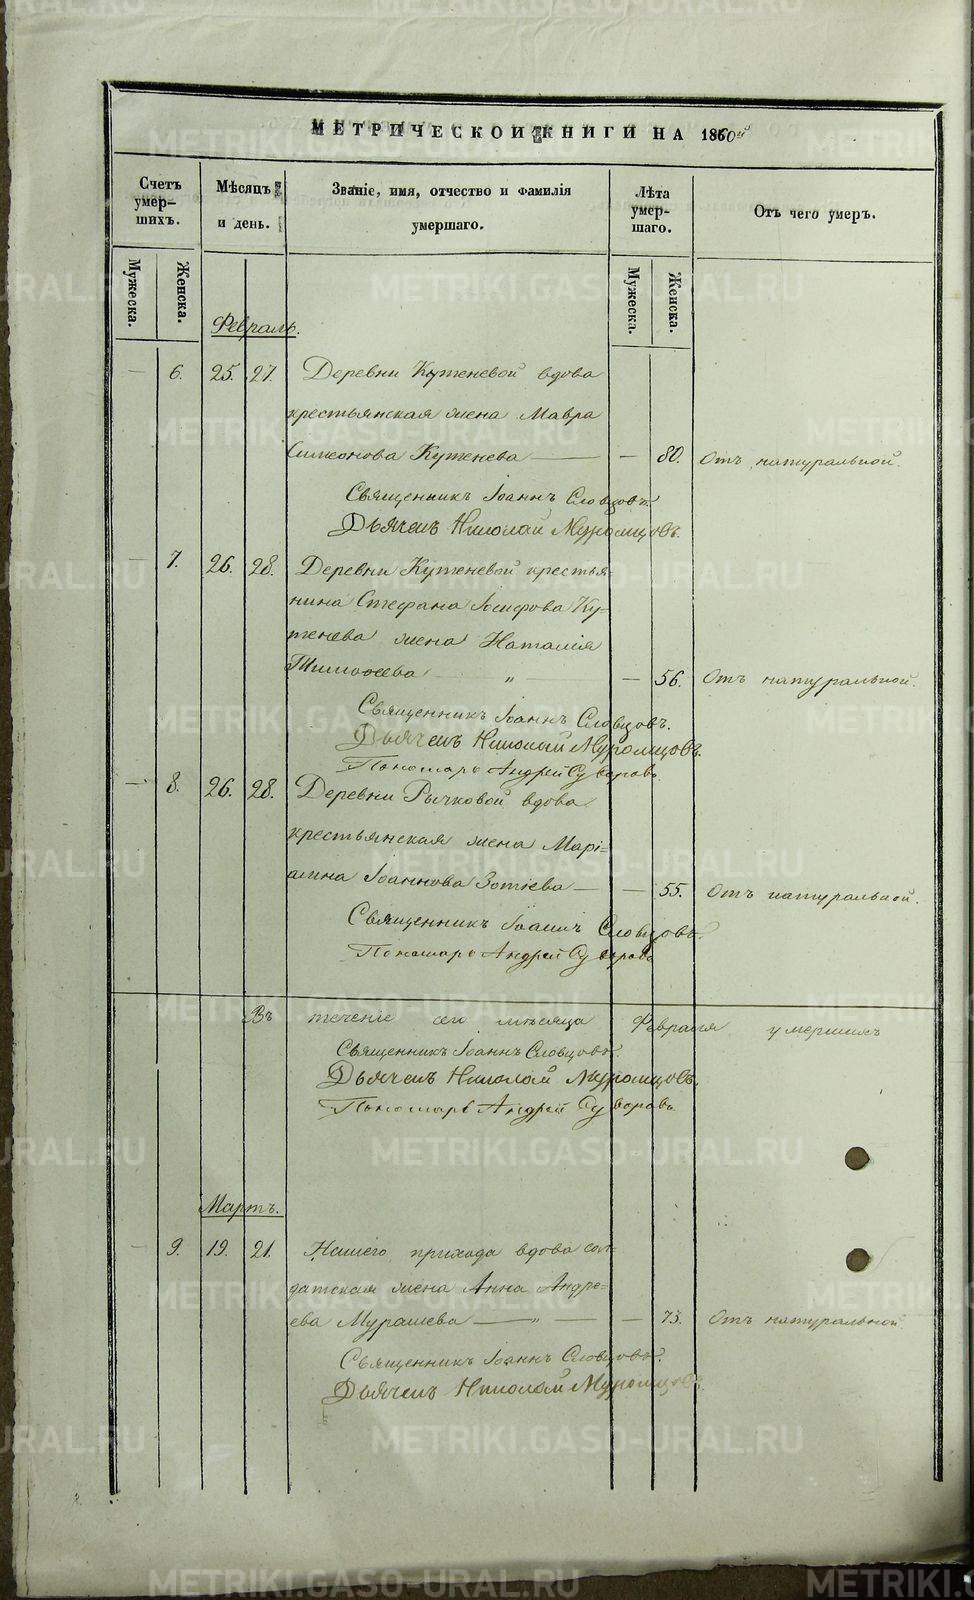 МЕТРИЧЕСКОЙ КНИГИ НА 1860й
Счетъ умер-шихъ.
Мѣсяцъ и день.
Званіе, имя, отчество и фамилія умершаго.
Лѣта умер-шаго.
Отъ чего умеръ.
Мужеска.
Женска.
Мужеска.
Женска.
Февраль.
— 6. 25. 27. Деревни Кутеневой вдова
крестьянская жена Мавра
Симеонова Кутенева — — 80. Отъ натуральной.
Священникъ Іоаннъ Словцовъ.
Дьячекъ Николай Муромцовъ.
— 7. 26. 28. Деревни Кутеневой крестья-
нина Стефана Іосифова Ку-
тенева жена Наталія
Тимоѳеева — „ — — 56. Отъ натуральной.
Священникъ Іоаннъ Словцовъ.
Дьячекъ Николай Муромцовъ.
Пономарь Андрей Суворовъ.
— 8. 26. 28. Деревни Рычковой вдова
крестьянская жена Марі-
амна Іоаннова Зотіева — — 55. Отъ натуральной.
Священникъ Іоаннъ Словцовъ.
Пономарь Андрей Суворовъ
Въ теченіе сего мѣсяца Февраля умершихъ
Священникъ Іоаннъ Словцовъ.
Дьячекъ Николай Муромцовъ.
Пономарь Андрей Суворовъ.
Мартъ.
— 9. 19. 21. Нашего прихода вдова сол-
датская жена Анна Андре-
ева Мурашева — „ — — 73. Отъ натуральной
Священникъ Іоаннъ Словцовъ.
Дьячекъ Николай Муромцовъ.
METRIKI.GASO-URAL.RU